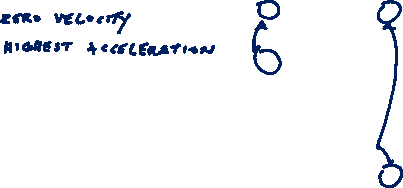 ZERO VELOCITY
HIGHEST ACCELERATION